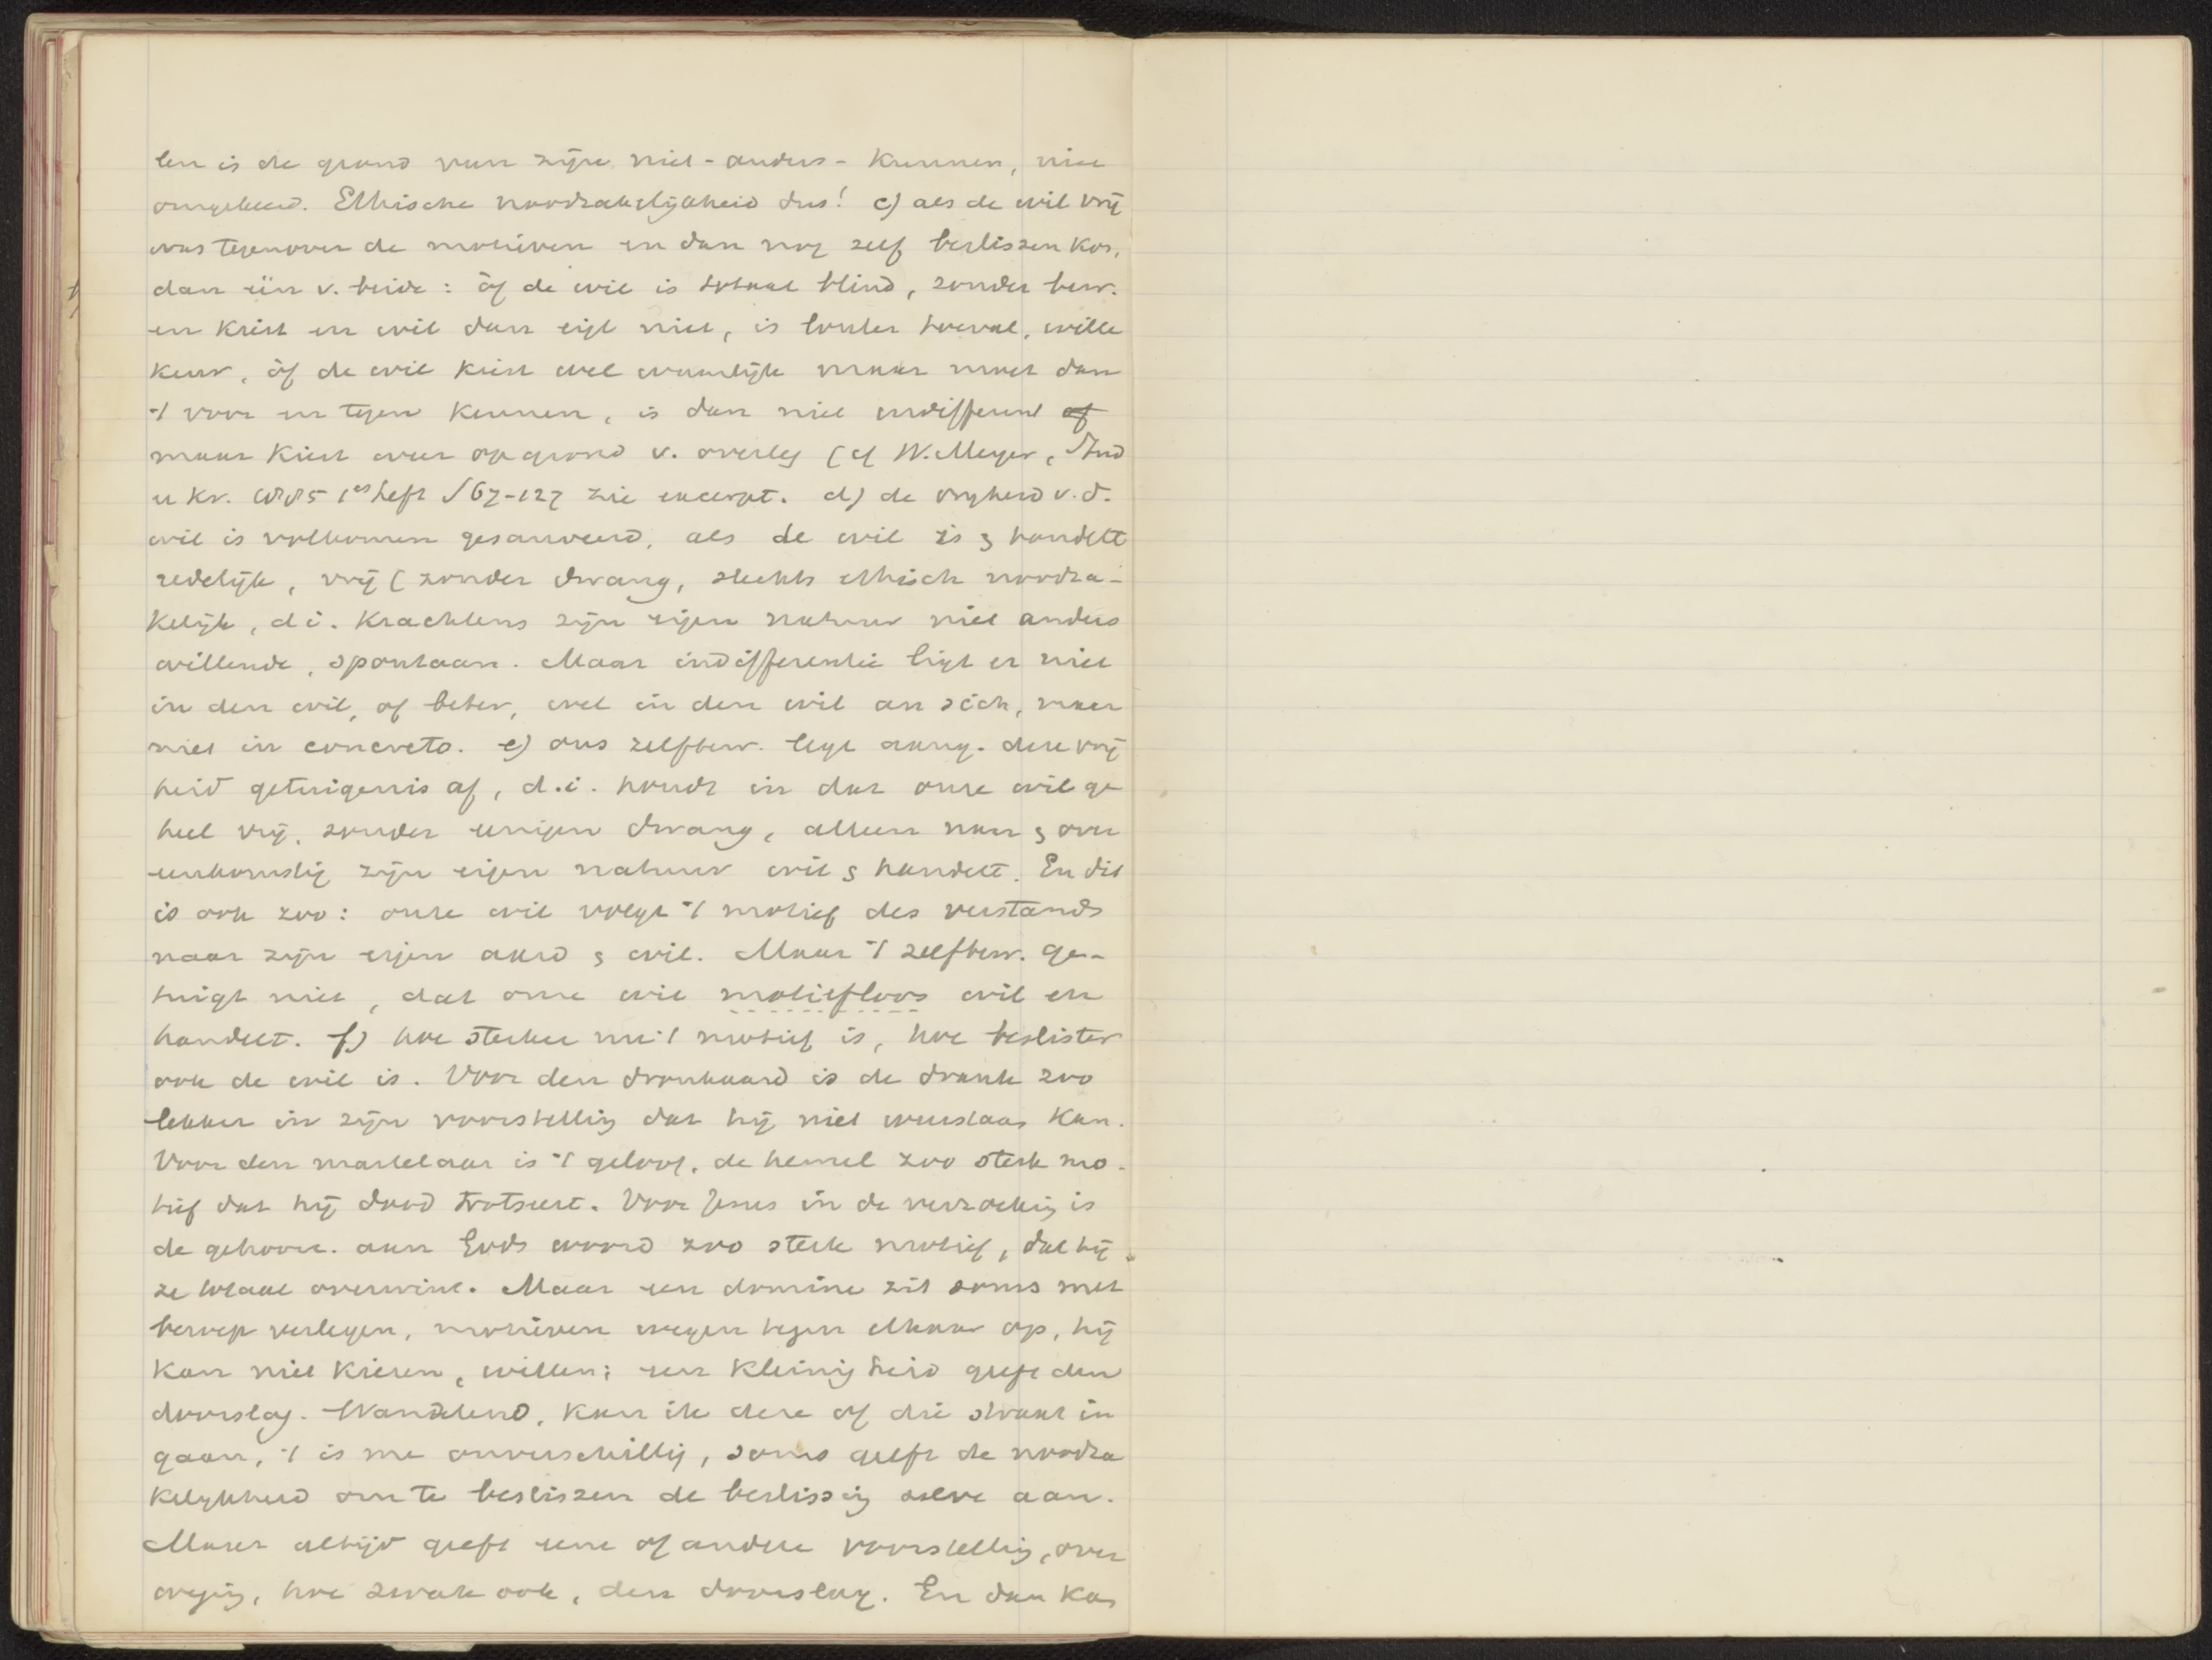 len is de grond van zijn niet-anders-kunnen, niet
omgekeerd. Ethische noodzakelijkheid dus! c) als de wil vrij
was tegenover de motieven en dan nog zelf beslissen kon,
dan één v. beide: òf de wil is totaal blind, zonder bew.
en kiest en wil dan eigl niet, is louter toeval, wille
keur, òf de wil kiest wel waarlijk maar moet dan
't voor en tegen kennen, is dan niet indifferent
maar kiest weer op grond v. overleg (cf W. Meyer, Stud
u Kr. 1es heft S 67-127 zie excerpt. d) de vrijheid v.d.
wil is volkomen gesauveerd, als de wil is & handelt
redelijk, vrij (zonder dwang, slechts ethisch noodza-
kelijk, d.i. krachtens zijn eigen natuur niet anders
willende, spontaan. Maar indifferentie ligt er niet
in den wil, of beter, wel in den wil an sich, maar
niet in concreto. e) ons zelfbew. legt aang. deze vrij
heid getuigenis af, d.i. houdt in dat onze wil ge
heel vrij, zonder eenigen dwang, alleen naar & over
eenkomstig zijn eigen natuur wil & handelt. En dit
is ook zoo: onze wil volgt 't motief des verstands
naar zijn eigen aard & wil. Maar 't zelfbew. ge-
tuigt niet, dat onze wil motiefloos wil en
handelt. f) hoe sterker nu 't motief is, hoe beslister
ook de wil is. Voor den dronkaard is de drank zoo
lekker in zijn voorstelling dat hij niet weerstaan kan.
Voor den martelaar is 't geloof, de hemel zoo sterk mo-
tief dat hij dood trotseert. Voor Jezus in de verzoeking is
de gehoorz. aan Gods woord zoo sterk motief, dat hij
ze totaal overwint. Maar een domine zit soms met
beroep verlegen, motieven wegen tegen elkaar op, hij
kan niet kiezen, willen; een kleinigheid geeft den
doorslag. Wandelend, kan ik deze of die straat in
gaan, 't is me onverschillig, soms geeft de noodza
kelijkheid om te beslissen de beslissing zelve aan.
Maar altijd geeft eene of andere voorstelling, over
weging, hoe zwak ook, den doorslag. En dan kan